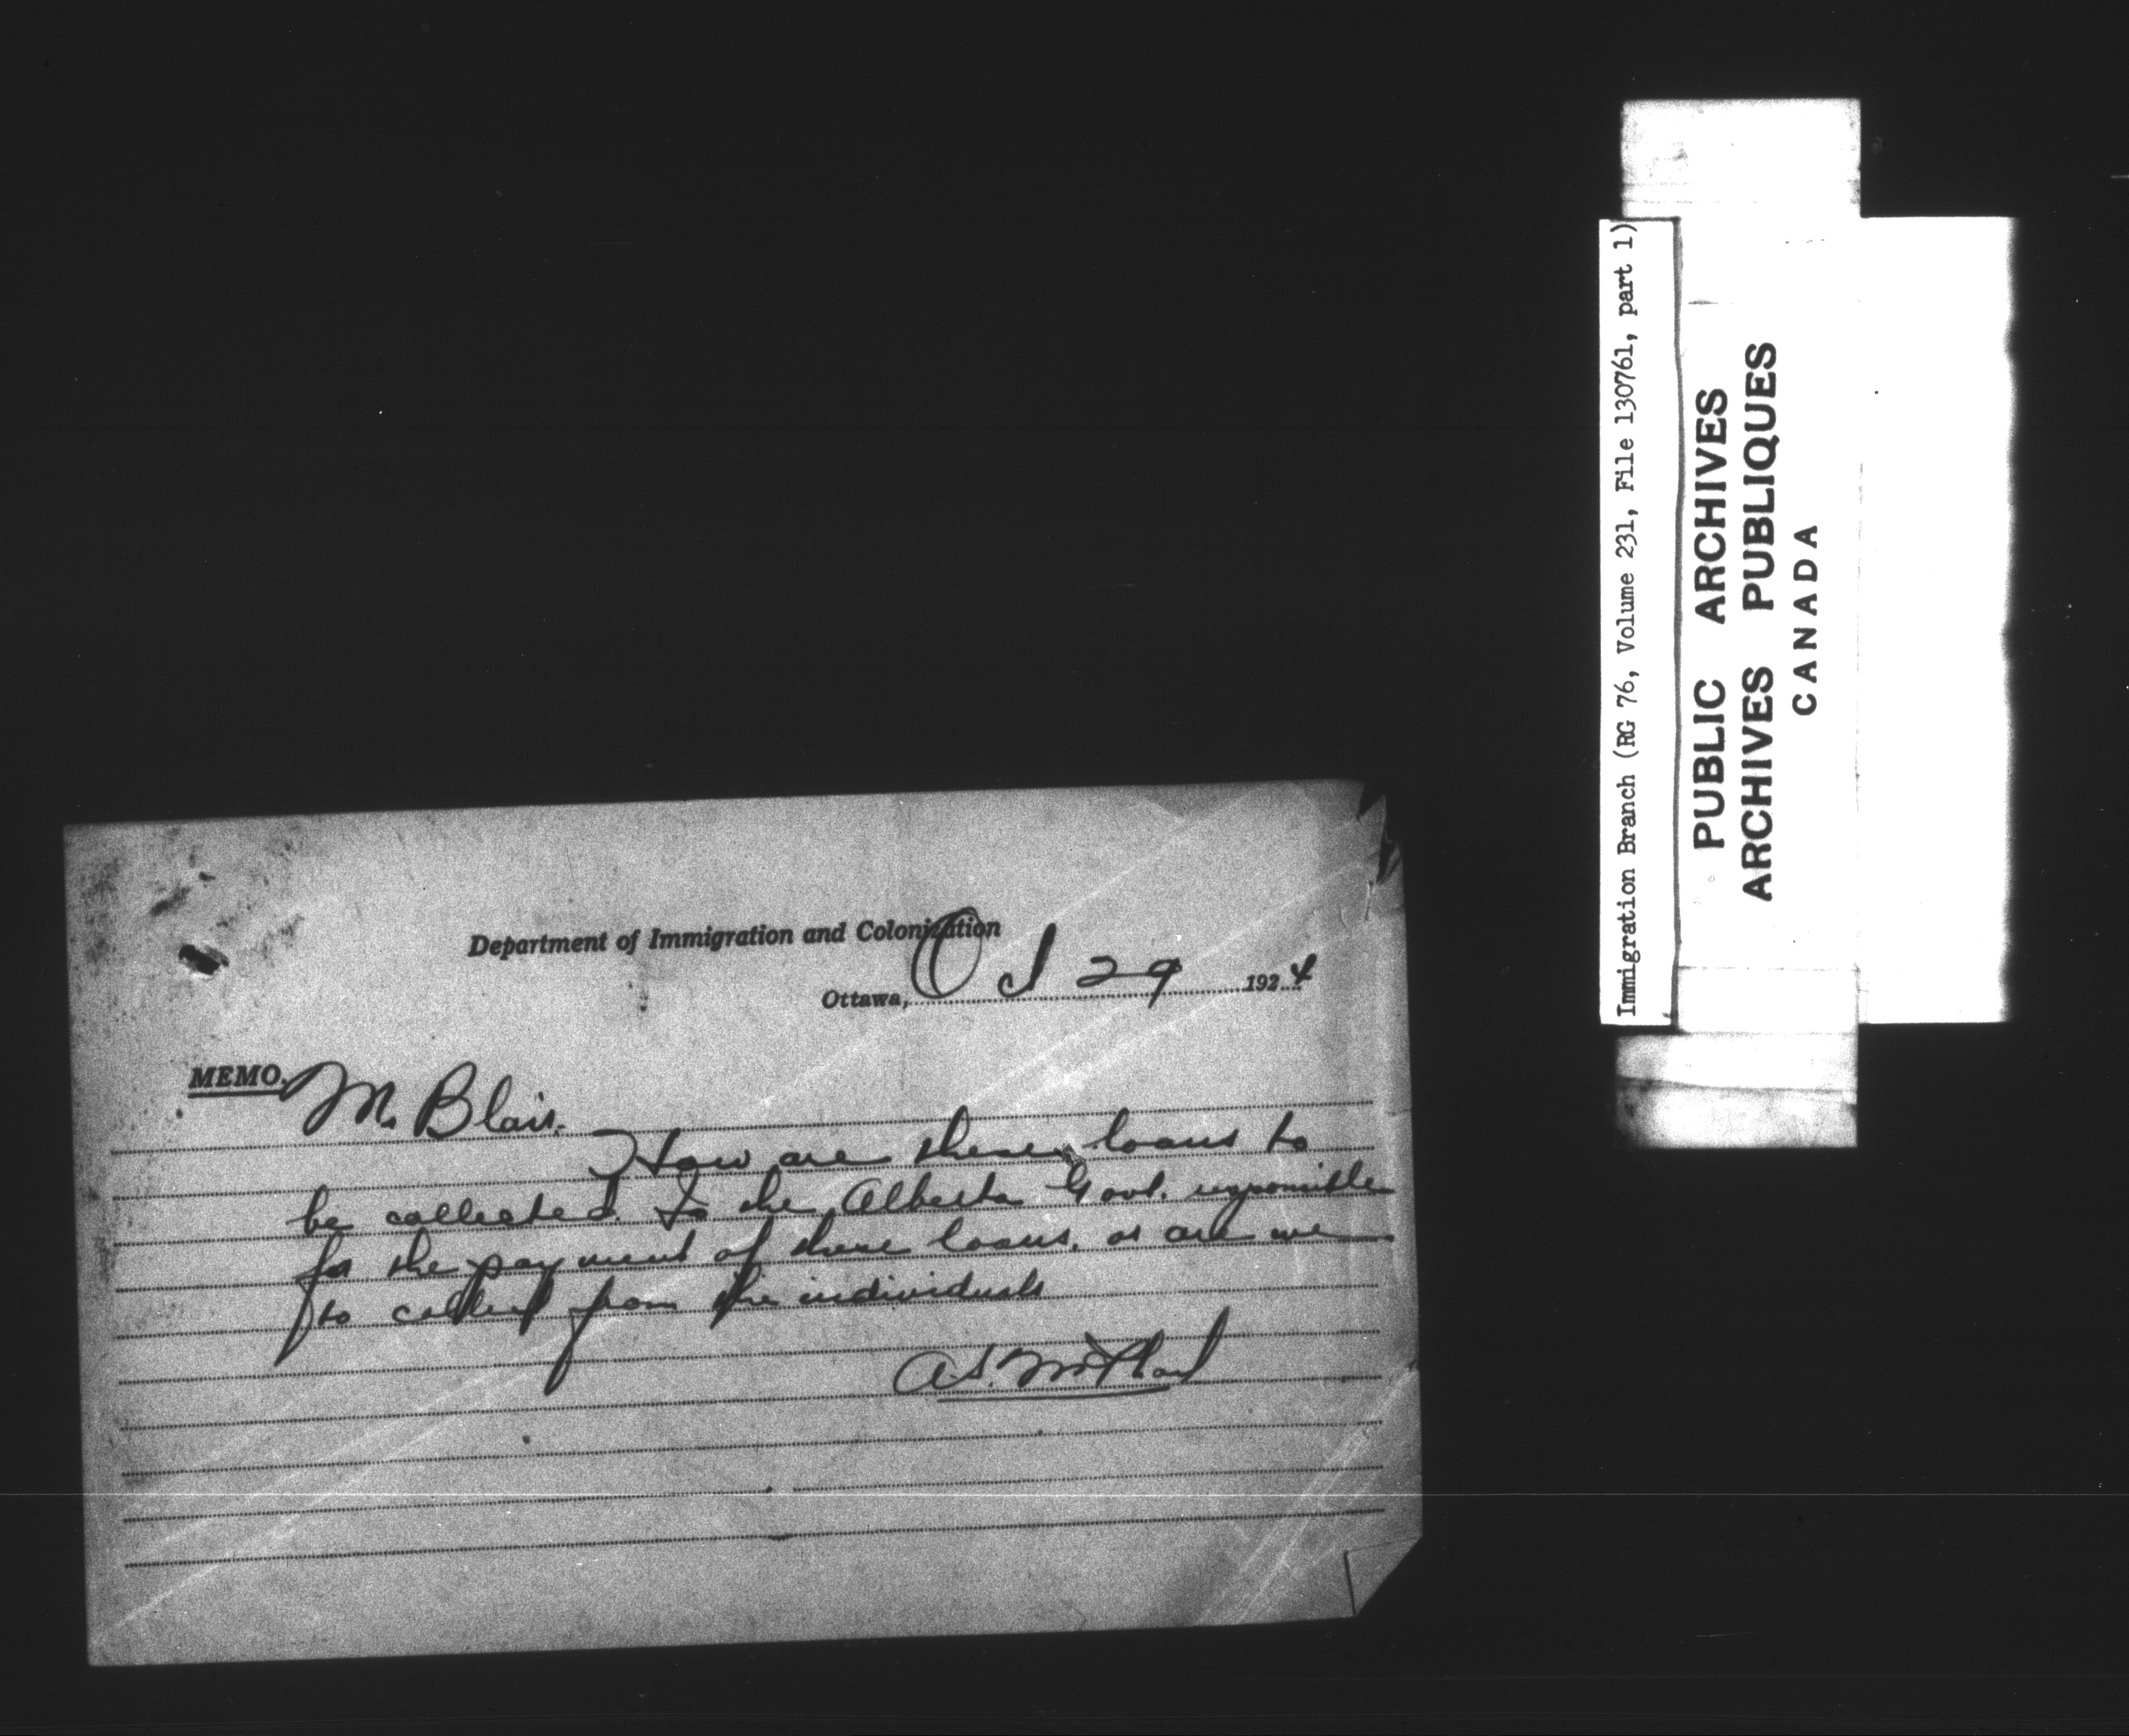 Department of Immigration and Colonization
Ottawa, Oct 29 1924
MEMO. Mr. Blair.
How are these loans to
be collected. Is the Alberta Govt. responsible
for the payment of these loans, or are we
to collect from the individuals
Immigration Branch (RG 76, Volume 231, File 130761, part 1)
PUBLIC ARCHIVES
ARCHIVES PUBLIQUES
CANADA